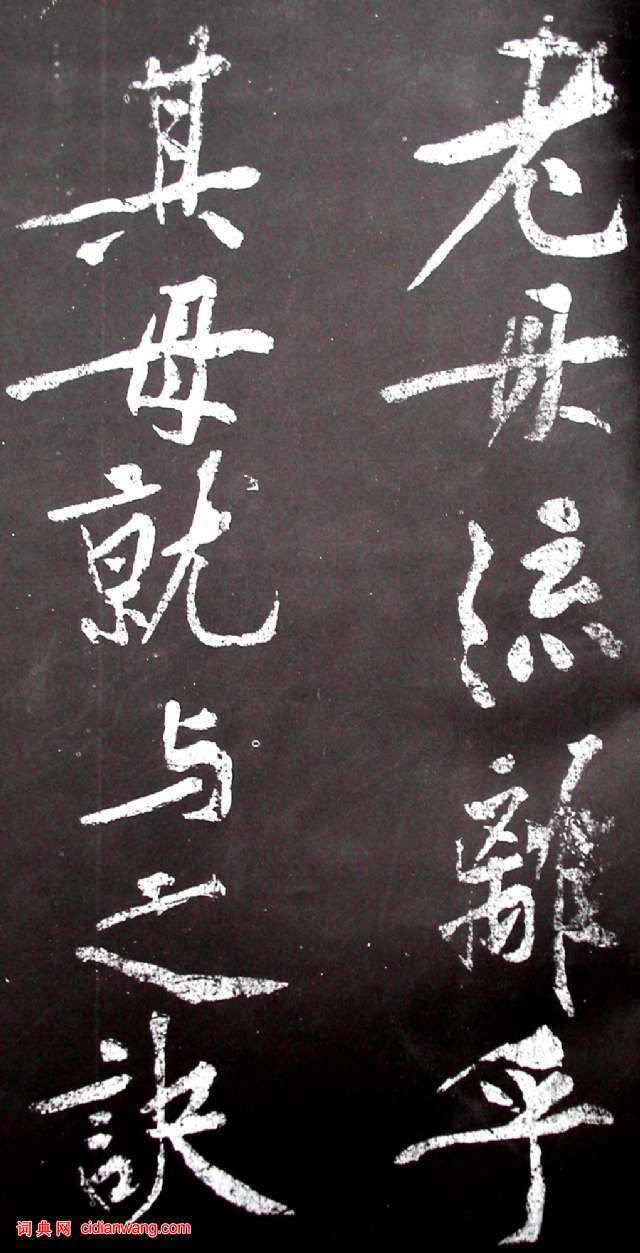 老母流離乎
其母就与之訣
词典网 cidianwang.com